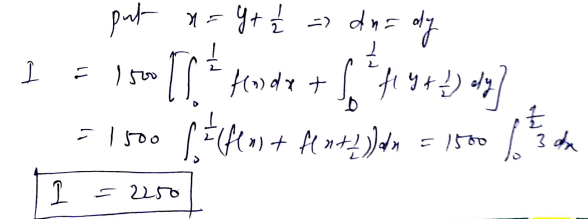 put x = y + 1/2 => dx = dy
I = 1500 [ ∫₀^{1/2} f(x) dx + ∫₀^{1/2} f(y + 1/2) dy ]
= 1500 ∫₀^{1/2} (f(x) + f(x + 1/2)) dx = 1500 ∫₀^{1/2} 3 dx
I = 2250